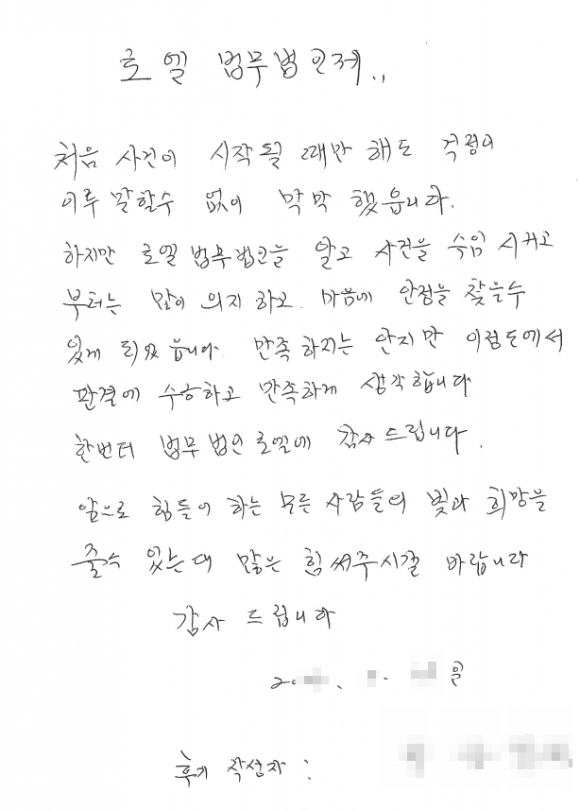 로엘 법무법인께..
처음 사건이 시작될 때만 해도 걱정이
이루 말할수 없이 막막 했읍니다.
하지만 로엘 법무법인을 알고 사건을 수임 시키고
부터는 많이 의지 하고. 마음에 안정을 찾을수
있게 되었 읍니다. 만족 하지는 안지만 이정도에서
판결에 수능하고 만족하게 생각합니다
한번더 법무 법인 로엘에 감사 드립니다.
앞으로 힘들어 하는 모른 사람들의 빛과 희망을
줄수 있는데 많은 힘 써주시길 바랍니다
감사 드립니다
20 . . 일
후기 작성자 :